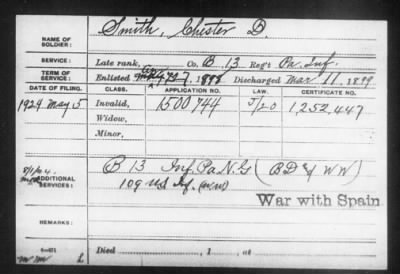 NAME OF SOLDIER: Smith, Chester D.
SERVICE: Late rank, Co. B. 13 Reg't Pa. Inf.
TERM OF SERVICE: Enlisted 7 1898 Discharged Mar 11. 1899
DATE OF FILING. CLASS. APPLICATION NO. LAW. CERTIFICATE NO.
1924 May 5 Invalid, 1500744 J/20 1,252,447
Widow,
Minor,
ADDITIONAL SERVICES: B 13 Inf. Pa. N.G. (B D of W W)
109 US Inf. (WW)
War with Spain
REMARKS:
Died , 1 , at